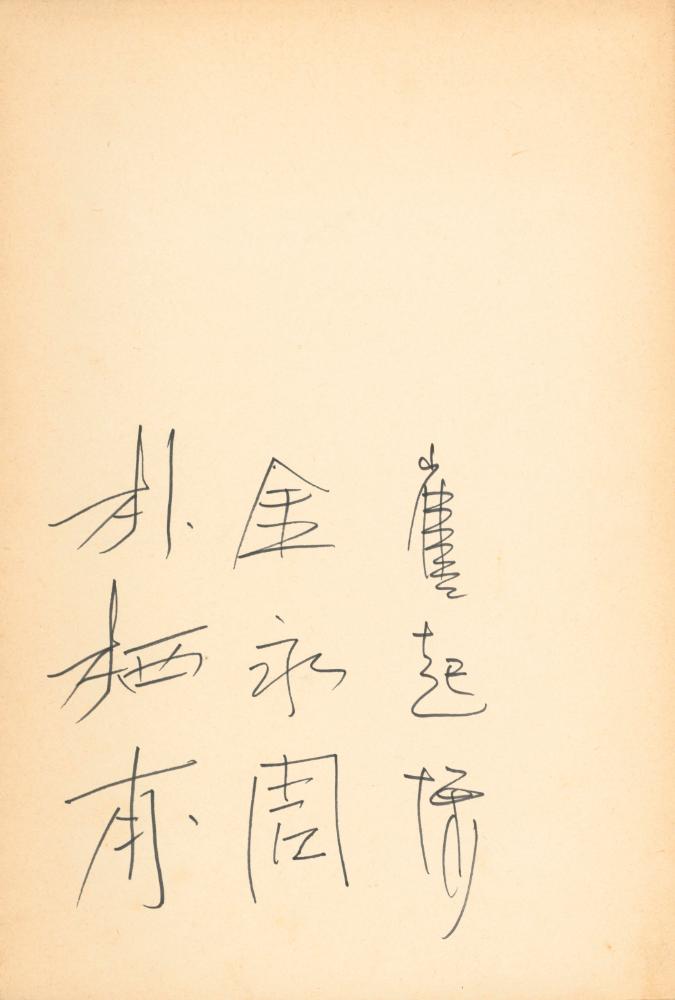 崔起
金永周
朴栖甫